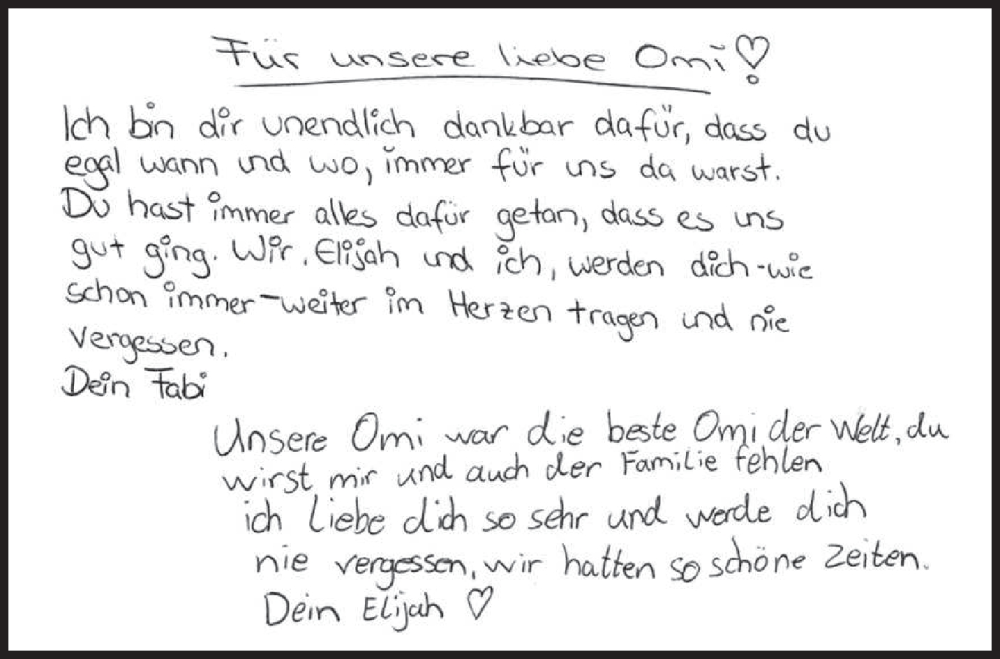 Für unsere liebe Omi♡!
Ich bin dir unendlich dankbar dafür, dass du
egal wann und wo, immer für uns da warst.
Du hast immer alles dafür getan, dass es uns
gut ging. Wir, Elijah und ich, werden dich-wie
schon immer-weiter im Herzen tragen und nie
vergessen.
Dein Fabi
Unsere Omi war die beste Omi der Welt, du
wirst mir und auch der Familie fehlen
ich liebe dich so sehr und werde dich
nie vergessen, wir hatten so schöne Zeiten.
Dein Elijah ♡